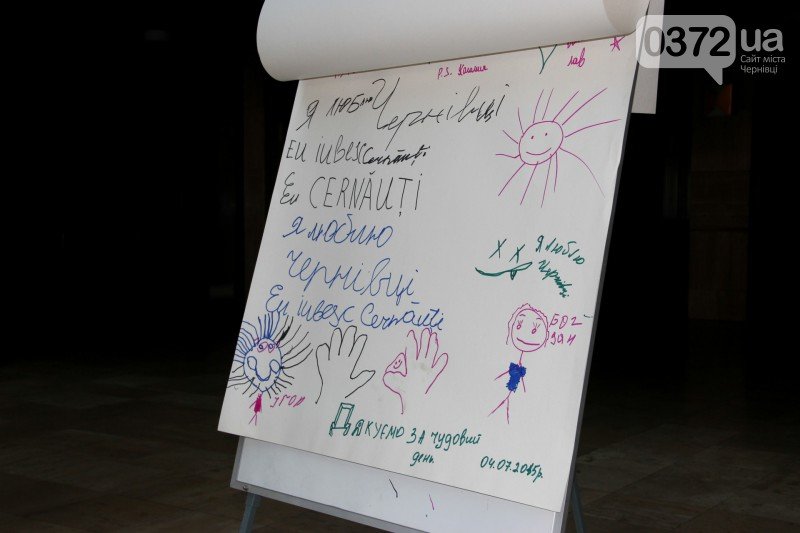 0372ua
Сайт міста
Чернівці
лав
P.S.
Я люблю Чернівці
Eu iubesc Cernăuți
Eu CERNĂUȚI
Я люблю
Чернівці
Eu iubesc Cernăuți
Я люблю
Чернівці
БОГ
ДАН
Дякуємо за чудовий
день.
04.07.2015р.